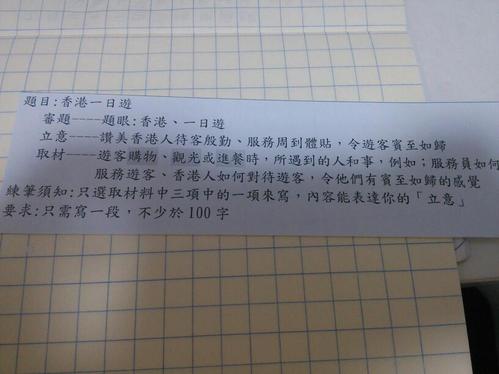 題目:香港一日遊
審題----題眼:香港、一日遊
立意----讚美香港人待客殷勤、服務周到體貼，令遊客賓至如歸
取材----遊客購物、觀光或進餐時，所遇到的人和事，例如；服務員如何
服務遊客、香港人如何對待遊客，令他們有賓至如歸的感覺
練筆須知:只選取材料中三項中的一項來寫，內容能表達你的「立意」
要求:只需寫一段，不少於100字